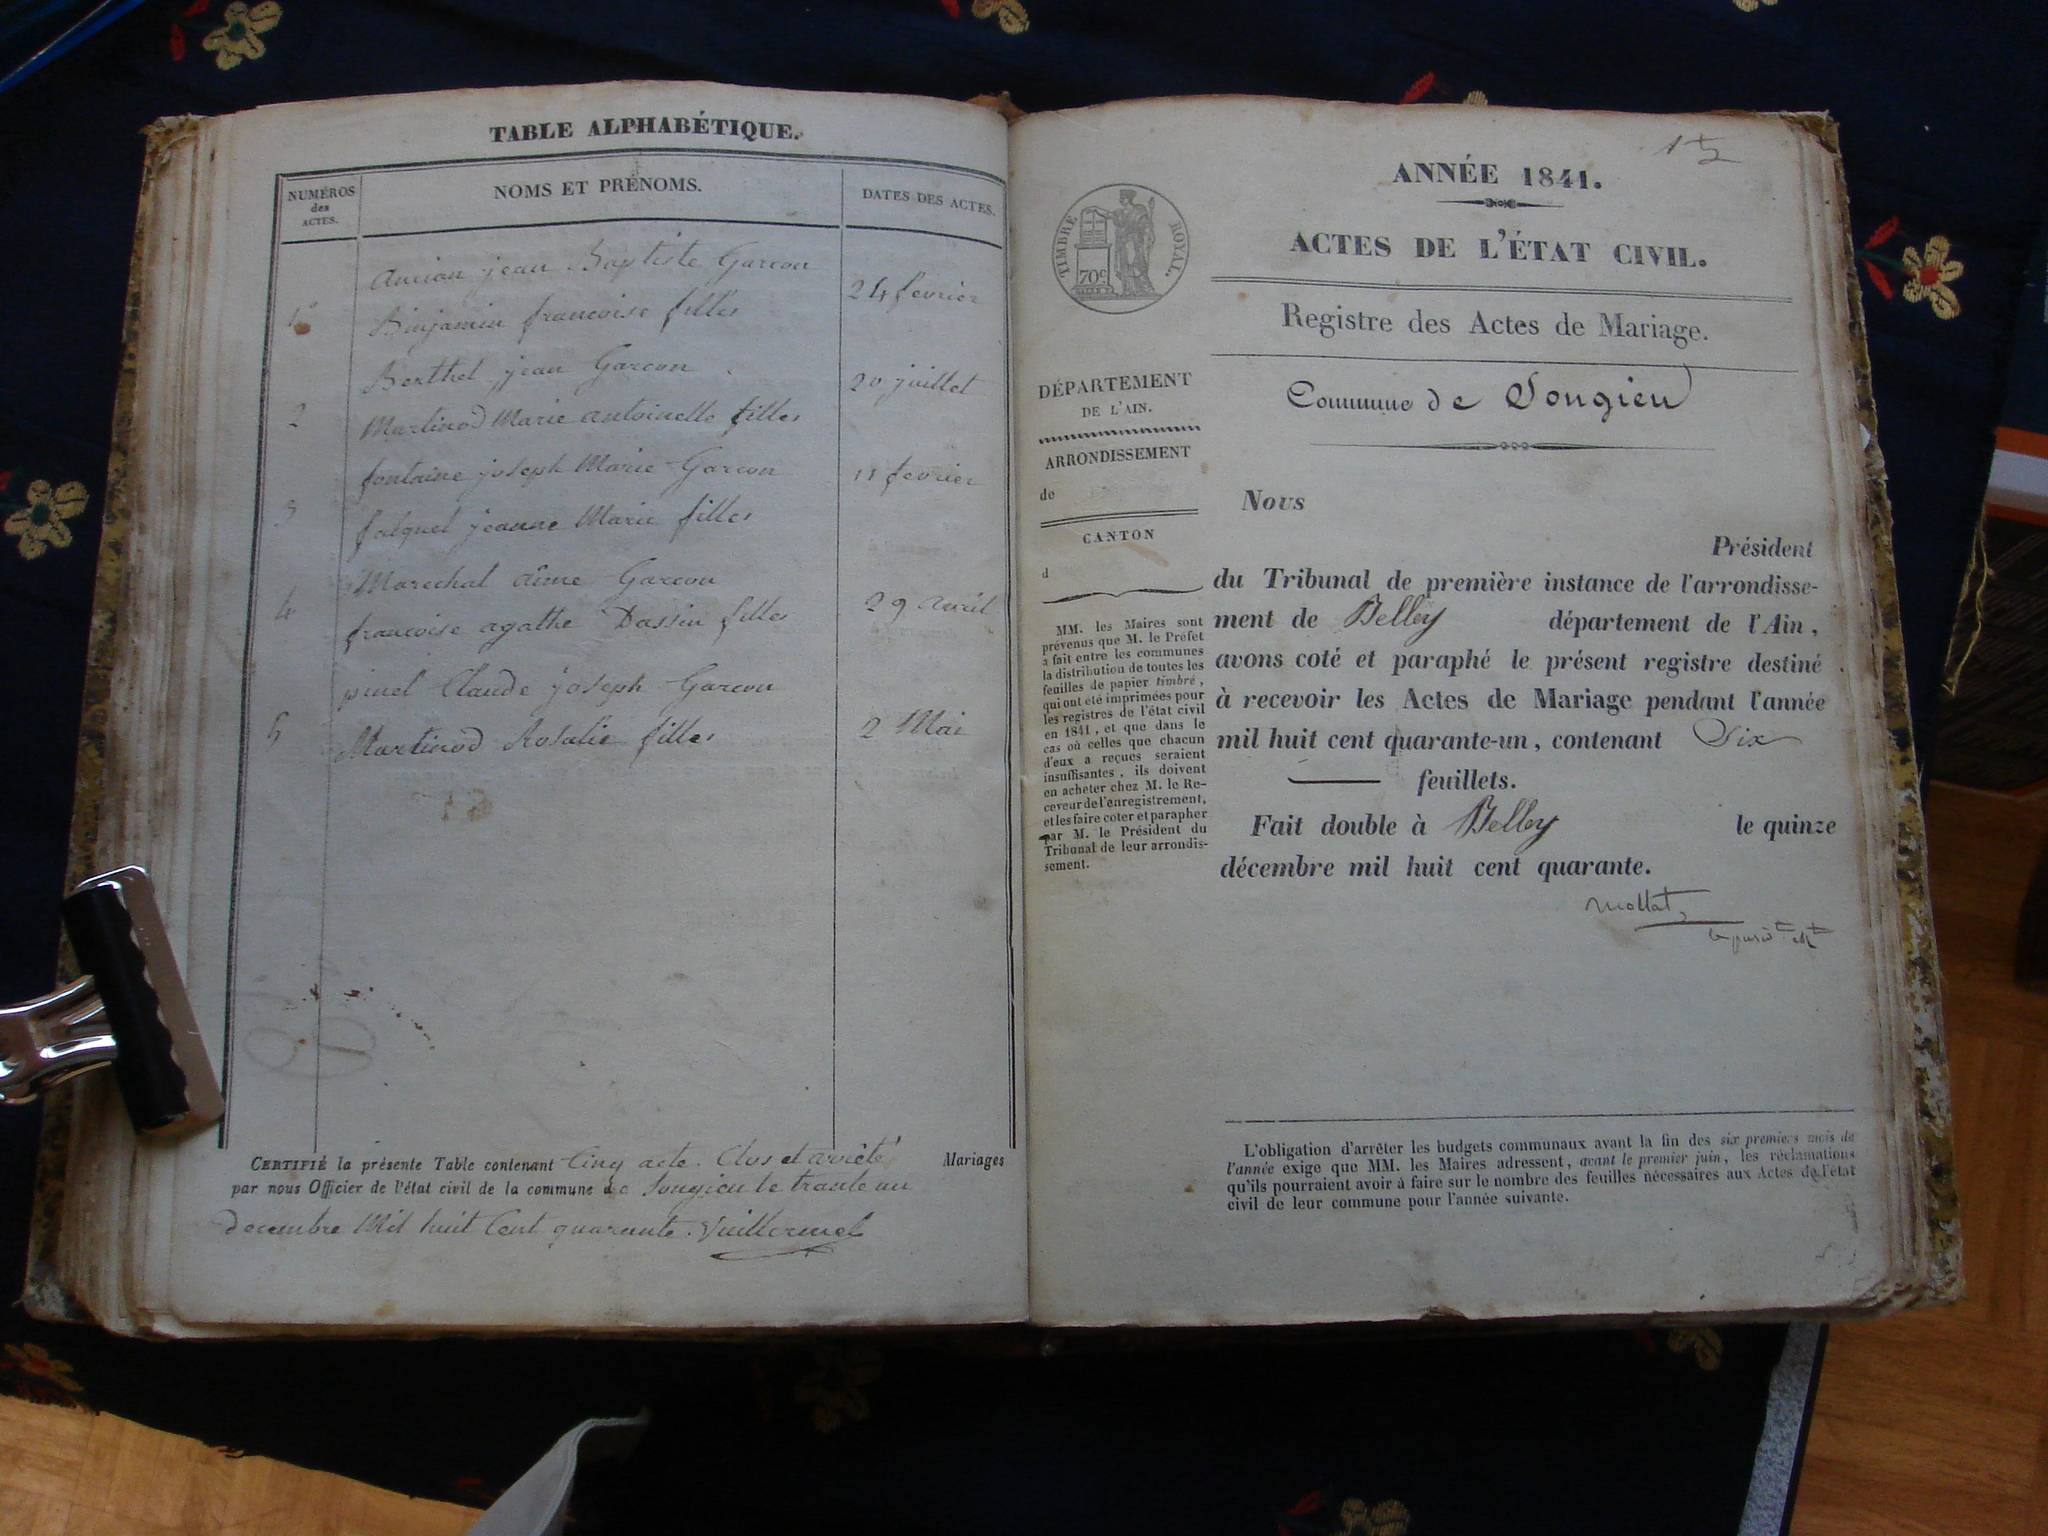 TABLE ALPHABÉTIQUE.
NUMÉROS des ACTES.
NOMS ET PRÉNOMS.
DATES DES ACTES.
Ancian jean Baptiste Garcon
24 fevrier
1
Binjamin francoise filles
Berthet jean Garcon
20 juillet
2
Martinod Marie antoinette filles
fontaine joseph Marie Garcon
11 fevrier
3
falquet jeanne Marie filles
Marechal aime Garcon
4
29 avril
francoise agathe Dassin filles
pinel Claude joseph Garcon
5
2 Mai
Martinod Rosalie filles
CERTIFIÉ la présente Table contenant Cinq acte. Clos et arrêté Mariages
par nous Officier de l'état civil de la commune de Songieu le trante un
decembre Mil huit Cent quarante. Vuillermet
ANNÉE 1841.
ACTES DE L'ÉTAT CIVIL.
TIMBRE ROYAL.
70c
Registre des Actes de Mariage.
Commune de Songieu
DÉPARTEMENT
DE L'AIN.
ARRONDISSEMENT
de
CANTON
d
MM. les Maires sont
prévenus que M. le Préfet
a fait entre les communes
la distribution de toutes les
feuilles de papier timbré,
qui ont été imprimées pour
les registres de l'état civil
en 1841, et que dans le
cas où celles que chacun
d'eux a reçues seraient
insuffisantes, ils doivent
en acheter chez M. le Re-
ceveur de l'enregistrement,
et les faire coter et parapher
par M. le Président du
Tribunal de leur arrondis-
sement.
Nous
Président
du Tribunal de première instance de l'arrondisse-
ment de Belley département de l'Ain,
avons coté et paraphé le présent registre destiné
à recevoir les Actes de Mariage pendant l'année
mil huit cent quarante-un, contenant Six
feuillets.
Fait double à Belley le quinze
décembre mil huit cent quarante.
Mollat
L'obligation d'arrêter les budgets communaux avant la fin des six premiers mois de
l'année exige que MM. les Maires adressent, avant le premier juin, les réclamations
qu'ils pourraient avoir à faire sur le nombre des feuilles nécessaires aux Actes de l'état
civil de leur commune pour l'année suivante.